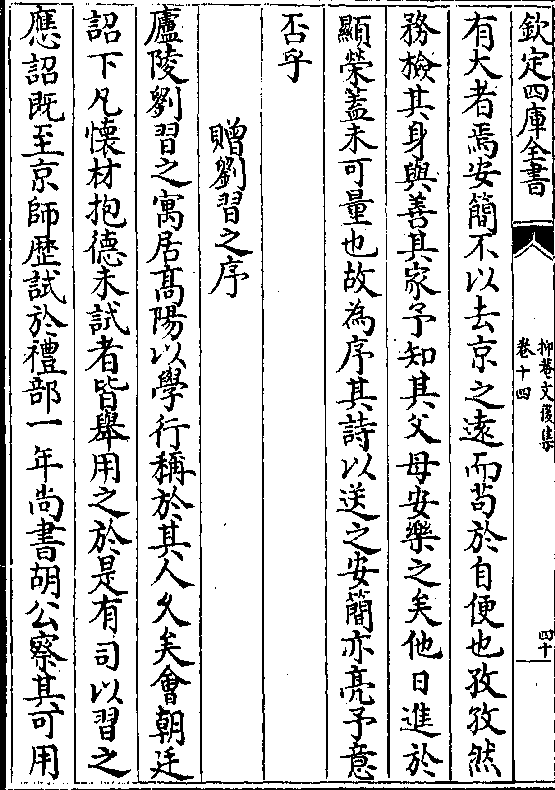 欽定四庫全書
抑菴文後集
卷十四
四十
有大者焉安簡不以去京之遠而茍於自便也孜孜然
務檢其身與善其家予知其父母安樂之矣他日進於
顯榮蓋未可量也故為序其詩以送之安簡亦亮予意
否乎
贈劉習之序
廬陵劉習之寓居髙陽以學行稱於其人久矣會朝廷
詔下凡懐材抱德未試者皆舉用之於是有司以習之
應詔既至京師歴試於禮部一年尚書胡公察其可用